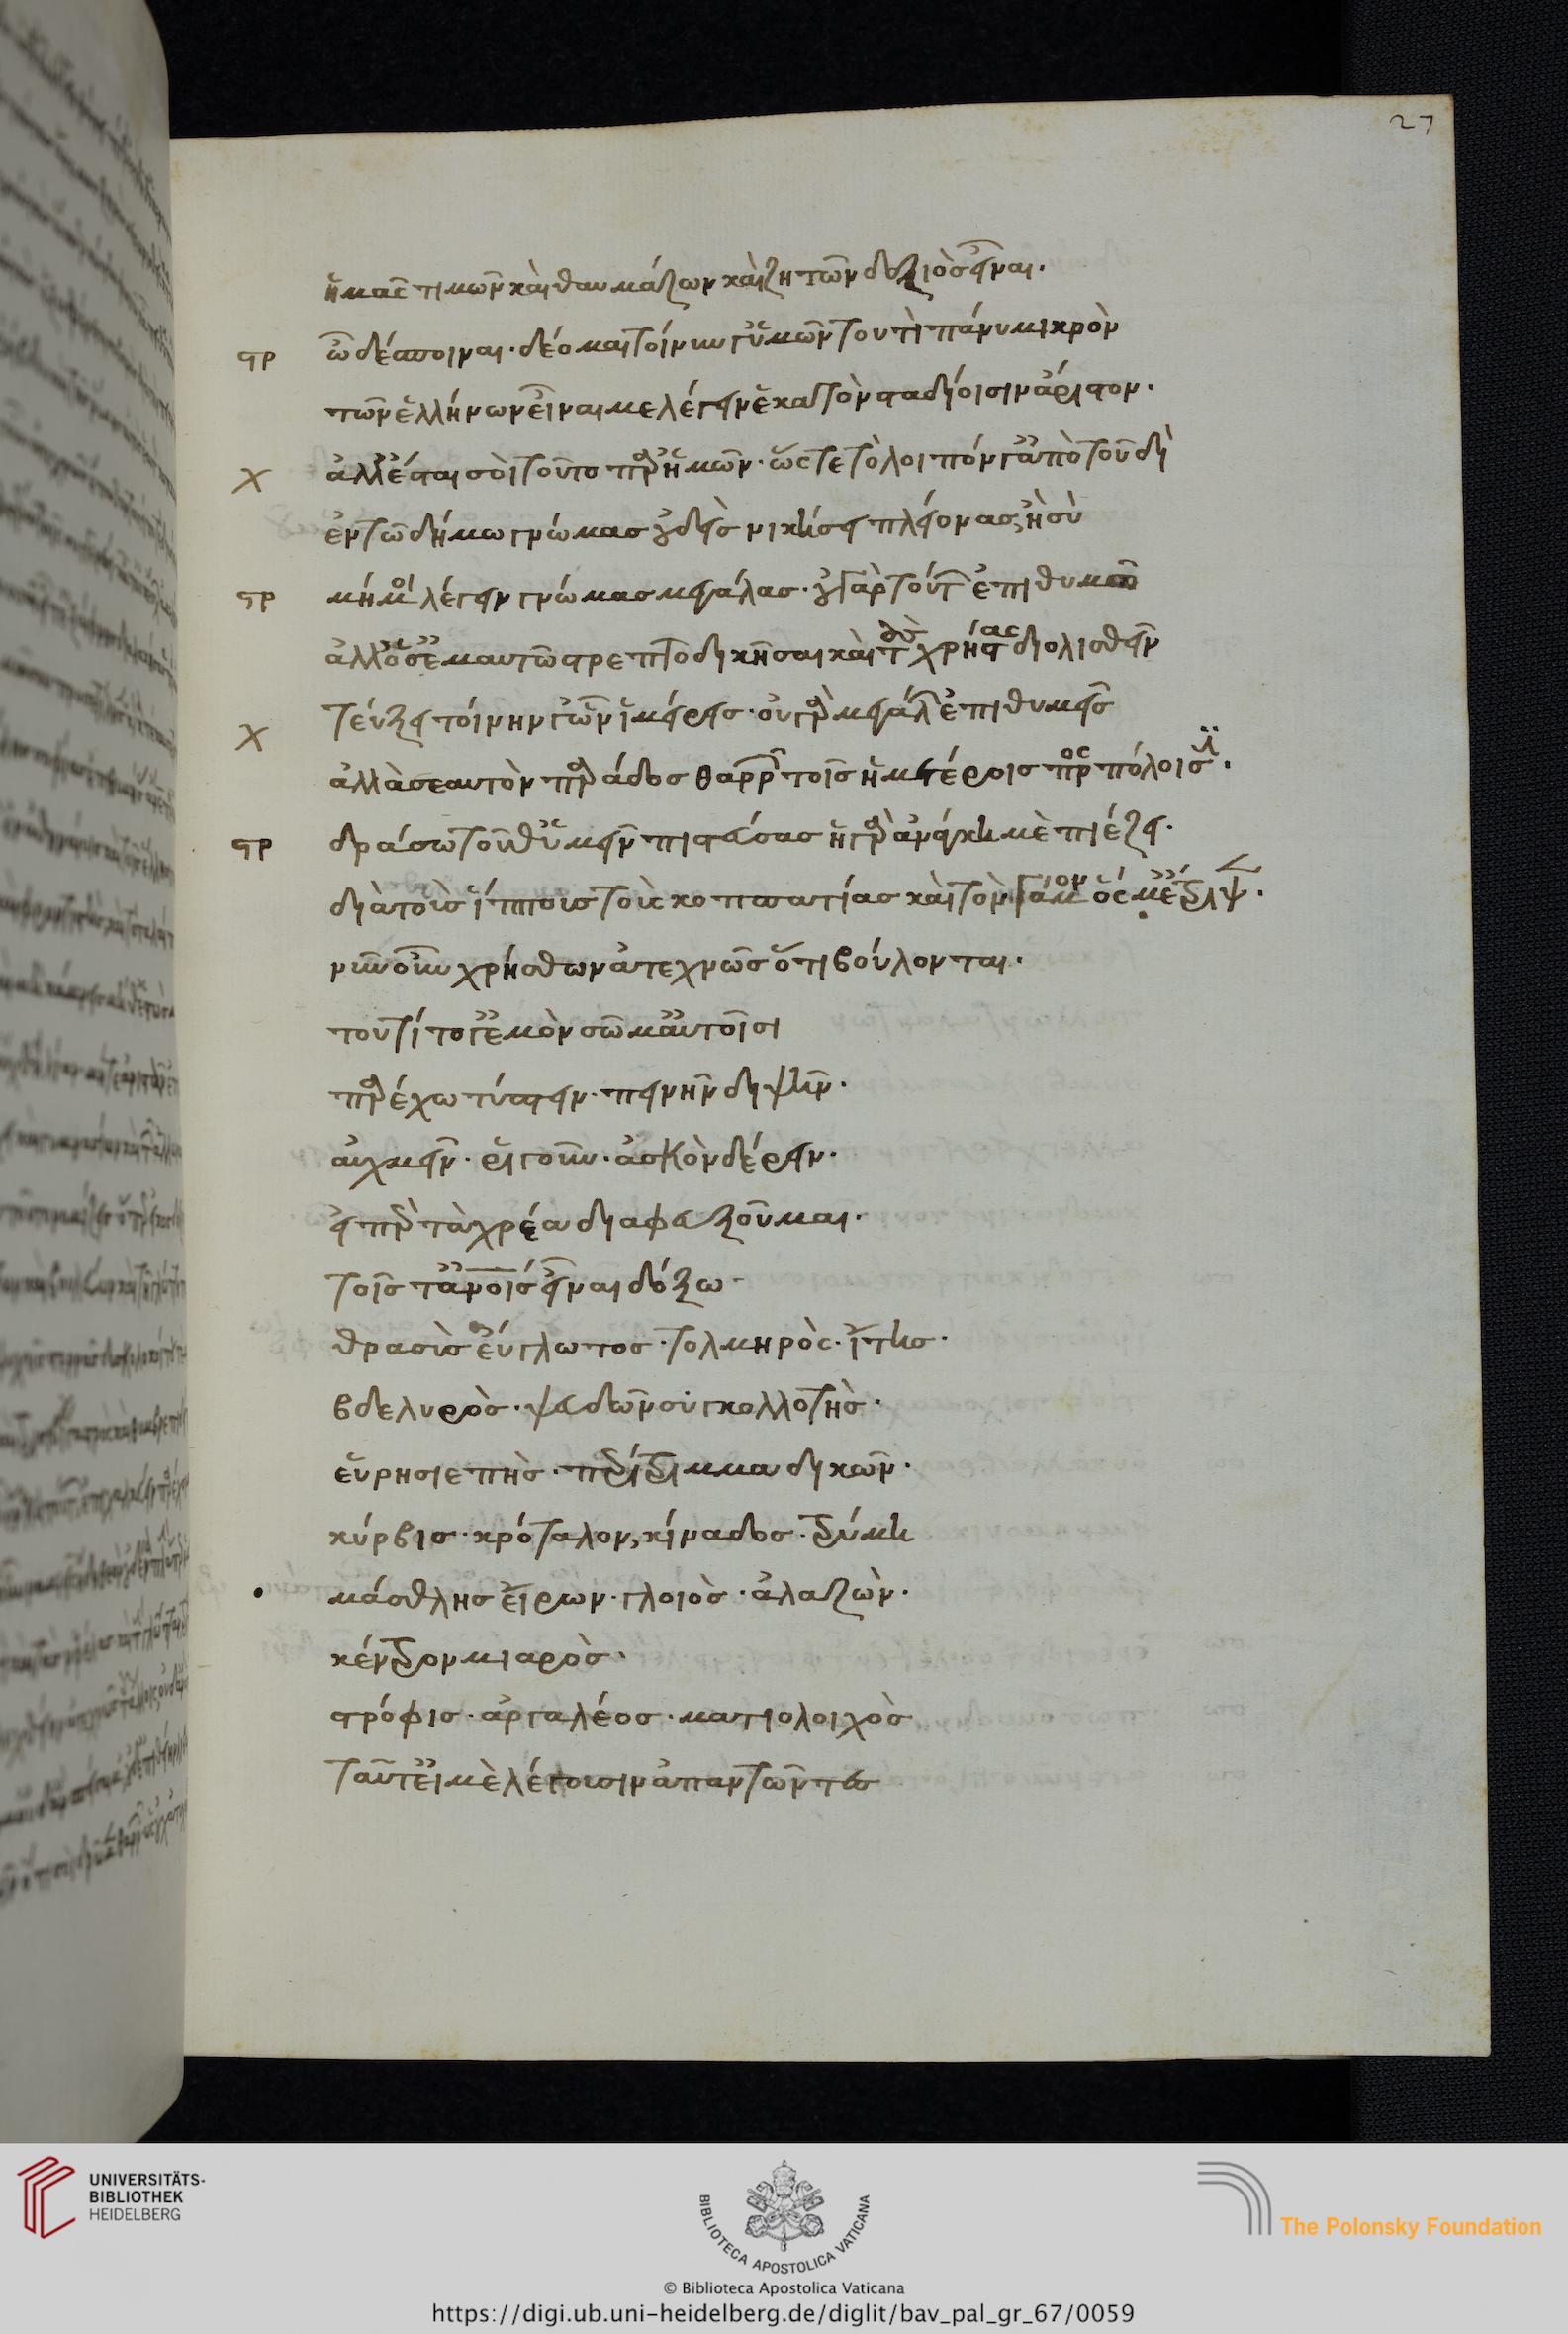 27
ἡμᾶς τιμῶν καὶ θαυμάζων καὶ ζητῶν δεξιὸς εἶναι.
στρ ὦ δέσποιναι· δέομαι τοίνυν γ᾽ ὑμῶν τουτὶ πάνυ μικρὸν
τῶν ἑλλήνων εἶναί με λέγειν ἑκατὸν σταδίοισιν ἄριστον.
χ ἀλλ᾽ ἔσται σοὶ τοῦτο παρ᾽ ἡμῶν· ὥστε τὸ λοιπόν γ᾽ ἀπὸ τοῦ δὶ
ἐν τῶ δήμω γνώμας οὐδεὶς νικήσει πλείονας ἢ σὺ
στρ μή μοι λέγειν γνώμας μεγάλας· οὐ γὰρ τούτ ἐπιθυμῶ
ἀλλ᾽ ὅσ᾽ ἐμαυτῶ στρεψοδικῆσαι καὶ τοὺς χρήστας διολισθεῖν
χ τεύξει τοίνυν γ᾽ ὧν ἱμείρεις· οὐ γὰρ μεγάλ ἐπιθυμεῖς
ἀλλὰ σεαυτὸν παράδος θαρρ τοῖς ἡμετέροις προσπόλοισι.
στρ δράσω τοῦθ᾽ ὑμῖν πιστεύσας ἡ γὰρ ἀνάγκη με πιέζει.
διὰ τοὺς ἵππους τοὺς κοππατίας καὶ τὸν γάμον ὅς μ᾽ ἐπέτριψ.
νῦν οὖν χρήσθων ἀτεχνῶς ὅτι βούλονται.
τουτί τό γ᾽ ἐμὸν σῶμ᾽ αὐτοῖσι
παρέχω τύπτειν· πεινῆν διψῆν.
αὐχμεῖν· ῥιγοῦν· ἀσκὸν δέρειν.
εἴπερ τὰ χρέα διαφευξοῦμαι.
τοῖς τ᾽ ἀνοις εἶναι δόξω
θρασὺς εὔγλωττος· τολμηρὸς· ἴτης.
βδελυρὸς· ψευδῶν συγκολλητὴς.
εὑρησιεπὴς· περίτριμμα δικῶν.
κύρβις· κρόταλον, κίναδος· τρύμη
μάσθλης εἴρων· γλοιὸς· ἀλαζὼν.
κέντρον μιαρὸς.
στρόφις· ἀργαλέος· ματιολοιχὸς
ταῦτ᾽ εἴ με λέγουσιν ἁπαντῶντες
UNIVERSITÄTS-
BIBLIOTHEK
HEIDELBERG
BIBLIOTECA APOSTOLICA VATICANA
The Polonsky Foundation
© Biblioteca Apostolica Vaticana
https://digi.ub.uni-heidelberg.de/diglit/bav_pal_gr_67/0059